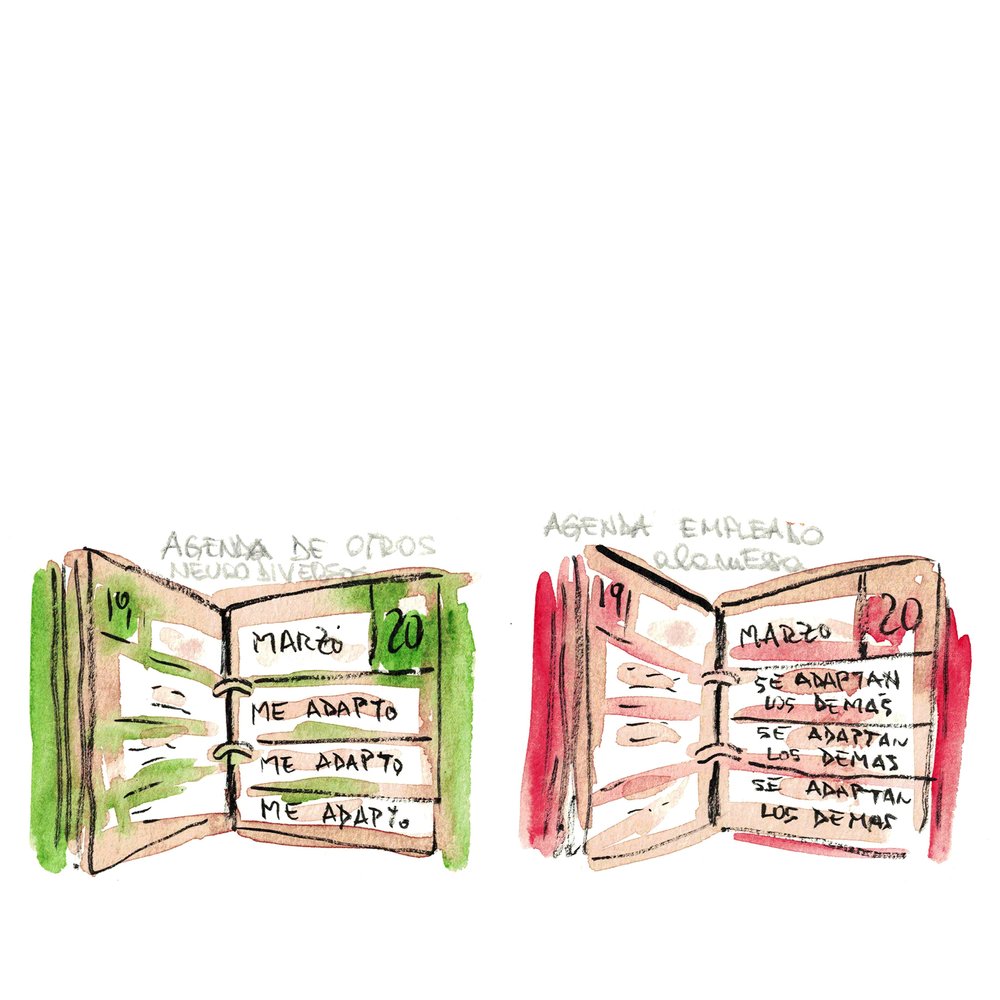 AGENDA DE OTROS
NEURODIVERSOS
19
MARZO
20
ME ADAPTO
ME ADAPTO
ME ADAPTO
AGENDA EMPLEADO
alamesa
19
MARZO
20
SE ADAPTAN
LOS DEMÁS
SE ADAPTAN
LOS DEMAS
SE ADAPTAN
LOS DEMAS